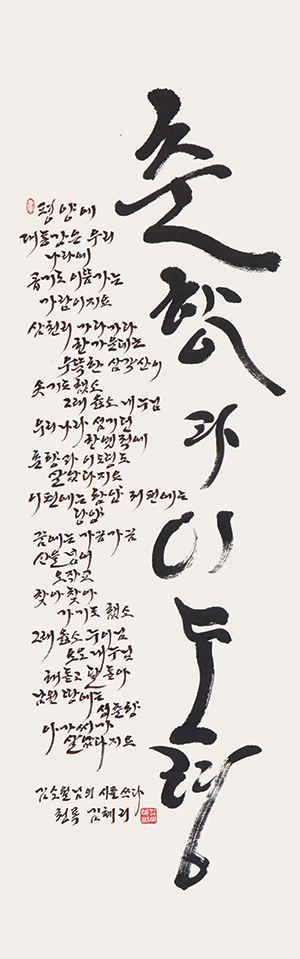 춘향과 이도령
평양에
대동강은 우리
나라에
곱기로 으뜸가는
가람이지요
삼천리 가다가다
한가운데는
우뚝한 삼각산이
솟기도 했소
그래 옳소 내 누님
우리나라 섬기던
한 옛적에
춘향과 이도령도
살았다지요
이편에는 함양 저편에는
담양
꿈에는 가끔가끔
산을 넘어
오작교
찾아 찾아
가기도 했소
그래 옳소 누이님
오오 내 누님
해돋고 달 돋아
남원 땅에는
성춘향
아가씨가
살았다지요
김소월님의 시를 쓰다
김혜리